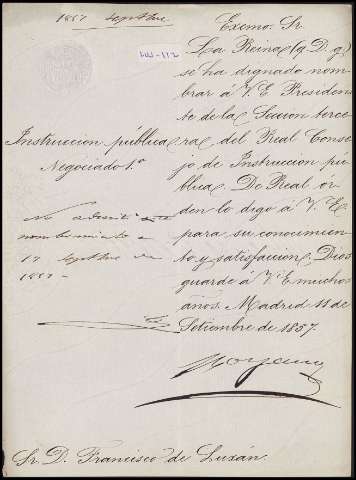 1857 Septbre.
LUJ-112
Excmo. Sr.
La Reina (q. D. g.)
se ha dignado nom-
brar á V. E. Presiden-
te de la Seccion terce-
ra del Real Conse-
jo de Instruccion pú-
blica. De Real ór-
den lo digo á V. E.
para su conocimien-
to y satisfaccion. Dios
guarde á V. E. muchos
años. Madrid 11 de
Setiembre de 1857.
Moyano
Instruccion pública
Negociado 1.º
No admití
nombramiento
17 Septbre de
1857
Sr. D. Francisco de Luxán.